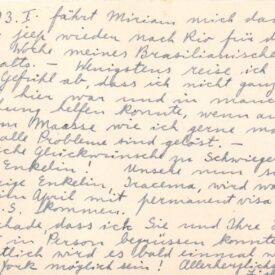 93. I. fährt Miriam mich da
jeep wieder nach Rio für d
Woche meines Brasilianische
alts. — Wenigstens reise ich
Gefühl ab, dass ich nicht gan
hier war und in man
ung helfen konnte, wenn au
m Maasse wie ich gerne m
alle Probleme sind gelöst. —
iche Glückwünsche zu Schwieger
Enkelin! Unsere nun s
eige Enkelin, Iracema, wird w
lin April mit permanent visa
.S. kommen.
hade, dass ich Sie und Ihre
in Person begrüssen konnte
tlich wird es bald einmal
York möglich sein! Allerherzlich